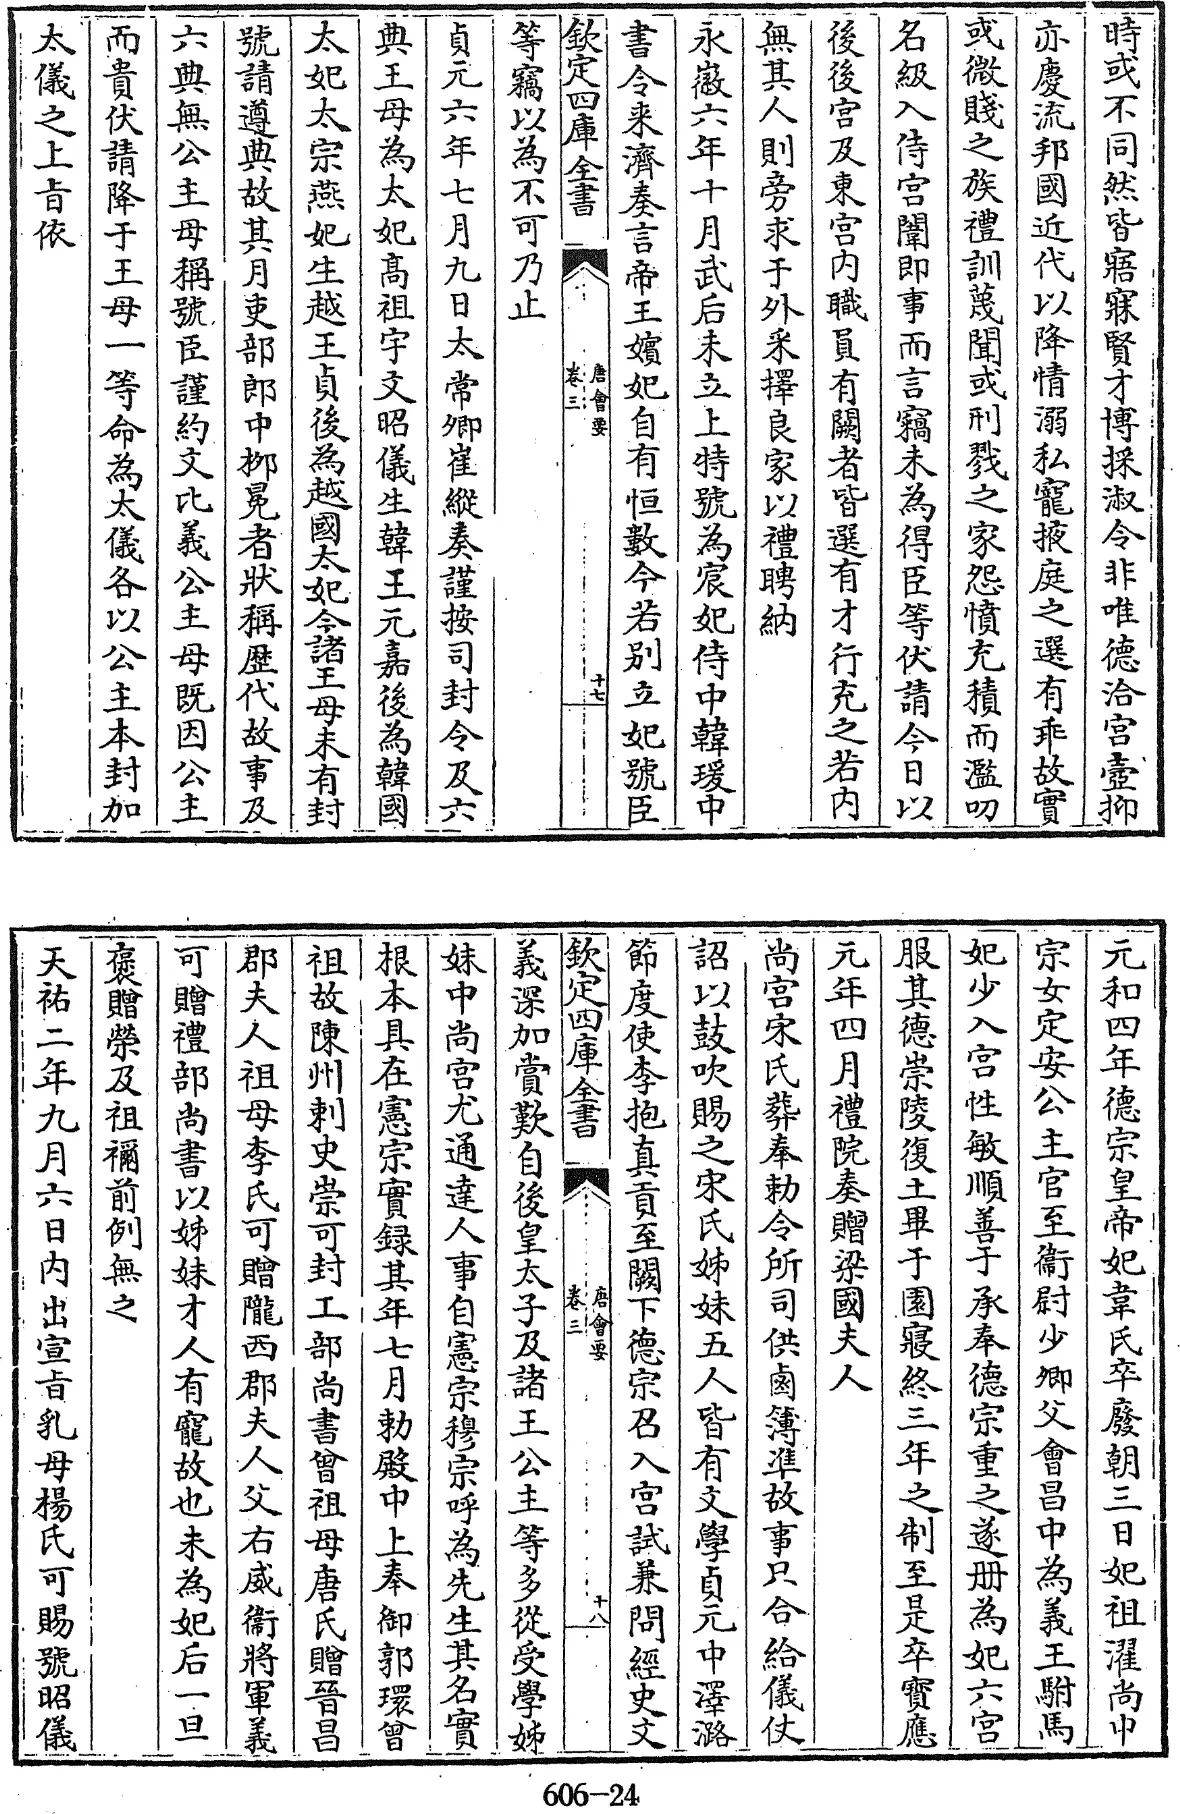 時或不同然皆寤寐賢才博採淑令非唯德洽宮壼抑
亦慶流邦國近代以降情溺私寵掖庭之選有乖故實
或微賤之族禮訓蔑聞或刑戮之家怨憤充積而濫叨
名級入侍宮闈即事而言竊未為得臣等伏請今日以
後後宮及東宮内職員有闕者皆選有才行充之若内
無其人則旁求于外采擇良家以禮聘納
永徽六年十月武后未立上特號為宸妃侍中韓瑗中
書令來濟奏言帝王嬪妃自有恒數今若别立妃號臣
欽定四庫全書
唐會要
卷三
十七
等竊以為不可乃止
貞元六年七月九日太常卿崔縱奏謹按司封令及六
典王母為太妃高祖宇文昭儀生韓王元嘉後為韓國
太妃太宗燕妃生越王貞後為越國太妃今諸王母未有封
號請遵典故其月吏部郎中栁冕者狀稱歴代故事及
六典無公主母稱號臣謹約文比義公主母既因公主
而貴伏請降于王母一等命為太儀各以公主本封加
太儀之上㫖依
元和四年德宗皇帝妃韋氏卒廢朝三日妃祖濯尚中
宗女定安公主官至衞尉少卿父會昌中為義王駙馬
妃少入宮性敏順善于承奉德宗重之遂册為妃六宮
服其德崇陵復土畢于園寢終三年之制至是卒寶應
元年四月禮院奏贈梁國夫人
尚宮宋氏葬奉勅令所司供鹵簿準故事只合給儀仗
詔以鼓吹賜之宋氏姊妹五人皆有文學貞元中澤潞
節度使李抱真貢至闕下德宗召入宮試兼問經史文
欽定四庫全書
唐會要
卷三
十八
義深加賞歎自後皇太子及諸王公主等多從受學姊
妹中尚宮尤通達人事自憲宗穆宗呼為先生其名實
根本具在憲宗實録其年七月勅殿中上奉御郭環曾
祖故陳州刺史崇可封工部尚書曾祖母唐氏贈晉昌
郡夫人祖母李氏可贈隴西郡夫人父右威衞將軍義
可贈禮部尚書以姊妹才人有寵故也未為妃后一旦
褒贈榮及祖禰前例無之
天祐二年九月六日内出宣㫖乳母楊氏可賜號昭儀
606-24